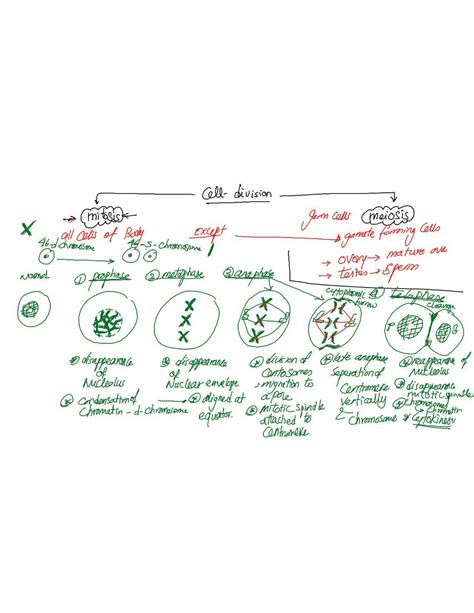 Cell-division
mitosis
Germ Cells meiosis
all Cells of Body Except gamete forming Cells
46-d chromosome 44-S-chromosome
→ overy → mature ova
→ testes → Sperm
Normal ① prophase ② metaphase ③ anaphase Cytoplasmic furrow ④ telophase
Cleavage
① disappearance of Nucleolus
② Condensation of Chromatin - d-chromosome
① disappearance of Nuclear-envelope
② aligned at equator.
① division of Centosomes
migration to a pole
② mitotic spindle attached to Centromere
① late anaphase
seperation of Centromere vertically
& Chromosome
① reappearance of Nucleolus
② disappearance mitotic spindle
③ Chromosome → Chromatin
④ Cytokinesis